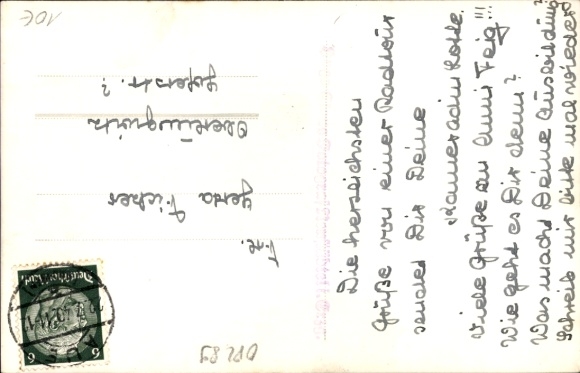 Die herzlichsten
Grüße von einer Radtour
sendet Dir Deine
Kameradin Lotte.
Viele Grüße an Anni Feig!!!
Wie geht es Dir denn?
Was macht Deine Ausbildung?
Schreib mir bitte mal wieder
Frl.
Gerda Fischer
Oberlungwitz
Hoferstr. ?
Deutsches Reich
6 6
10€